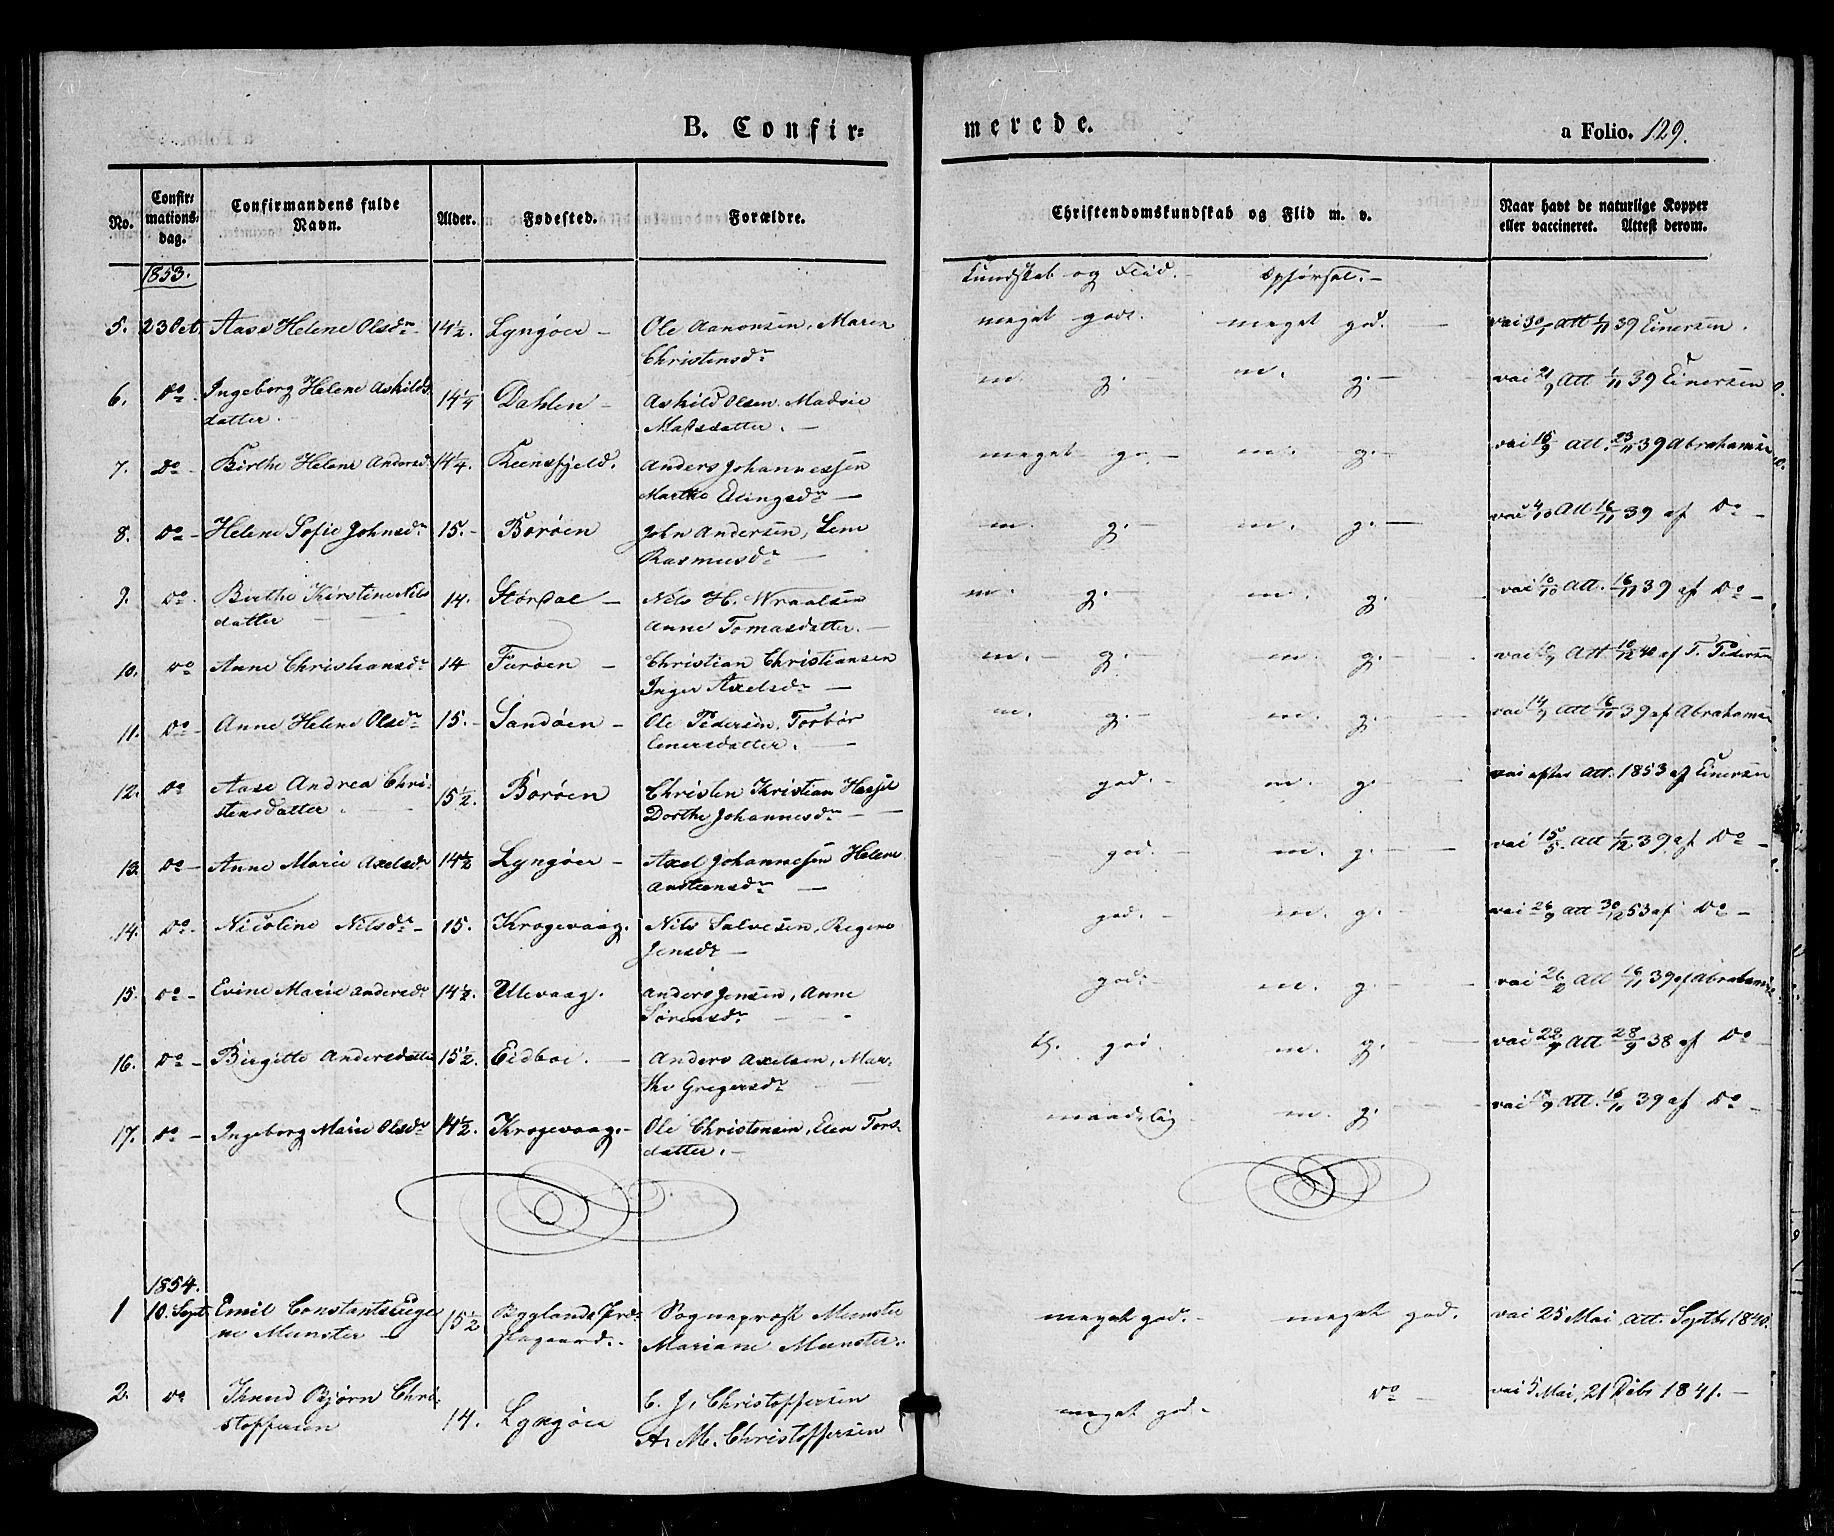 B. Confir=
merede.
a Folio. 129.
No.
Confir=
mations=
dag.
Confirmandens fulde
Navn.
Alder.
Fødested.
Forældre.
Christendomskundskab og Flid m. v.
Naar havt de naturlige Kopper
eller vaccineret. Attest derom.
1853.
Kundskab og Flid. — Opførsel. —
5. 23 Oct. Aase Helene Olsdr 14½. Lyngøer — Ole Aanonsen, Maren
Christensdr
meget godt. meget god. — vai 30/ Att 1/11 39 Einersen.
6. Do. Ingeborg Helene Askilds
datter. 14¼ Dahlen — Askild Olsen. Madsie
Matsdatter. —
m. g. — m. g. — vai 21/9 Att 1/11 39 Einersen
7. Do — Birthe Helene Andersd 14¼. Reensfjeld. Anders Johannessen
Marthe Elingsdr —
meget go. m. g. — vai 15/9 Att. 23/11 39 Abrahamsen
8. Do — Helene Sofie Johnsdr 15. — Borøen John Andersen, Lene
Rasmusdr —
m. g. — m. g. — vai 4/10 Att 16/11 39 af Do —
9. Do. Birthe Kirstine Nils
datter 14. Størdal — Nils H. Wraalsen
Anne Tomasdatter. —
m. g. — m. g. — vai 10/10 Att. 16/11 39 af Do —
10. Do Anne Christiansdr 14 Furøen — Christian Christiansen
Inger Axelsdr —
m. — g. — m. g. — vai Att. 10/12 40 af T. Pedersen
11. Do — Anne Helene Olsdr 15. — Sandøen — Ole Pedersen, Torbør
Einersdatter. —
m. g. — m. g. — vai 14/9 Att 16/11 39 af Abrahamsen
12. Do Aase Andrea Chri-
stensdatter. 15½. Borøen Christen Kristian
Dorthe Johannesdr —
god. — m. g. — vai efter Att. 1853 af Einersen
13. Do — Anne Marie Axelsdr 14½ Lyngøer — Axel Johannessen Helene
Austensdr —
god. — m. g. — vai 15/5. Att 1/12 39 af Do —
14. Do — Nicoline Nilsdr — 15. Krogevaag. Nils Salvesen, Regine
Jensdr —
god. — m. g. — vai 26/9 Att 30/12 53 af Do —
15. Do — Evine Marie Andersdr 14½. Ulevaag. Anders Jensen, Anne
Sørensdr
god. m. g. — vai 26/2 Att 16/11 39 af
16. Do — Birgitte Andersdatter 15½. Eidboe. — Anders Axelsen, Mar-
the Gregersdr
god m. g. — vai Att 28/9 38 af Do —
17. Do — Ingeborg Marie Olsdr 14½. Krogevaag. — Ole Christensen, Elen Tors-
datter. —
maadelig m. g. — vai Att. 16/11 39 af Do —
1854.
1 10. Sept Emil Constants Euge
ne Munster — 15½ Byglands Præ-
stegaard. — Sogneprest Munster
Mariane Munster.
meget god. — meget god. vai 25 Mai, att. Septbr 1840.
2. Do Knud Bjørn Chri-
stoffersen 14. Lyngøer C. J. Christoffersen
A. M. Christoffersen
meget god — Do — vai 5 Mai, 21 Debr 1841. —